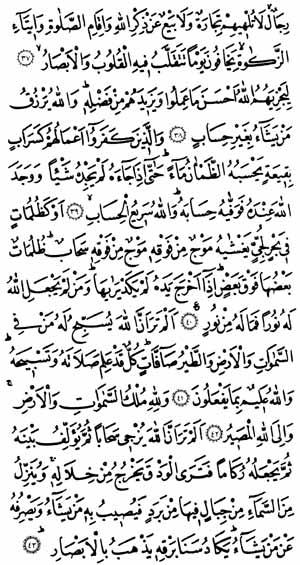 رِجَالٌ لَا تُلْهِيهِمْ تِجَارَةٌ وَلَا بَيْعٌ عَنْ ذِكْرِ اللهِ وَاِقَامِ الصَّلٰوةِ وَاِيتَاءِ
الزَّكٰوةِ يَخَافُونَ يَوْمًا تَتَقَلَّبُ فِيهِ الْقُلُوبُ وَالْاَبْصَارُ ﴿٣٧﴾
لِيَجْزِيَهُمُ اللهُ اَحْسَنَ مَا عَمِلُوا وَيَزِيدَهُمْ مِنْ فَضْلِهِ وَاللهُ يَرْزُقُ
مَنْ يَشَاءُ بِغَيْرِ حِسَابٍ ﴿٣٨﴾ وَالَّذِينَ كَفَرُوا اَعْمَالُهُمْ كَسَرَابٍ
بِقِيعَةٍ يَحْسَبُهُ الظَّمْاٰنُ مَاءً حَتّٰى اِذَا جَاءَهُ لَمْ يَجِدْهُ شَيْئًا وَوَجَدَ
اللهَ عِنْدَهُ فَوَفّٰيهُ حِسَابَهُ وَاللهُ سَرِيعُ الْحِسَابِ ﴿٣٩﴾ اَوْ كَظُلُمَاتٍ
فِي بَحْرٍ لُجِّيٍّ يَغْشٰيهُ مَوْجٌ مِنْ فَوْقِهِ مَوْجٌ مِنْ فَوْقِهِ سَحَابٌ ظُلُمَاتٌ
بَعْضُهَا فَوْقَ بَعْضٍ اِذَا اَخْرَجَ يَدَهُ لَمْ يَكَدْ يَرٰيهَا وَمَنْ لَمْ يَجْعَلِ اللهُ
لَهُ نُورًا فَمَا لَهُ مِنْ نُورٍ ﴿٤٠﴾ اَلَمْ تَرَ اَنَّ اللهَ يُسَبِّحُ لَهُ مَنْ فِي
السَّمٰوَاتِ وَالْاَرْضِ وَالطَّيْرُ صَافَّاتٍ كُلٌّ قَدْ عَلِمَ صَلَاتَهُ وَتَسْبِيحَهُ
وَاللهُ عَلِيمٌ بِمَا يَفْعَلُونَ ﴿٤١﴾ وَلِلّٰهِ مُلْكُ السَّمٰوَاتِ وَالْاَرْضِ
وَاِلَى اللهِ الْمَصِيرُ ﴿٤٢﴾ اَلَمْ تَرَ اَنَّ اللهَ يُزْجِي سَحَابًا ثُمَّ يُؤَلِّفُ بَيْنَهُ
ثُمَّ يَجْعَلُهُ رُكَامًا فَتَرَى الْوَدْقَ يَخْرُجُ مِنْ خِلَالِهِ وَيُنَزِّلُ
مِنَ السَّمَاءِ مِنْ جِبَالٍ فِيهَا مِنْ بَرَدٍ فَيُصِيبُ بِهِ مَنْ يَشَاءُ وَيَصْرِفُهُ
عَنْ مَنْ يَشَاءُ يَكَادُ سَنَا بَرْقِهِ يَذْهَبُ بِالْاَبْصَارِ ﴿٤٣﴾